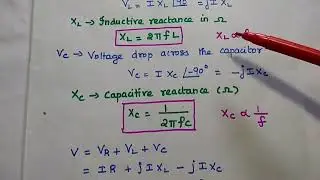 V_L = I X_L ∠90° = jI X_L
X_L → Inductive reactance in Ω
X_L = 2πfL X_L ∝
V_C → Voltage drop across the capacitor
V_C = I X_C ∠-90° = -jI X_C
X_C → Capacitive reactance (Ω)
X_C = 1/2πfC X_C ∝ 1/f
V = V_R + V_L + V_C
= IR + jI X_L - jI X_C